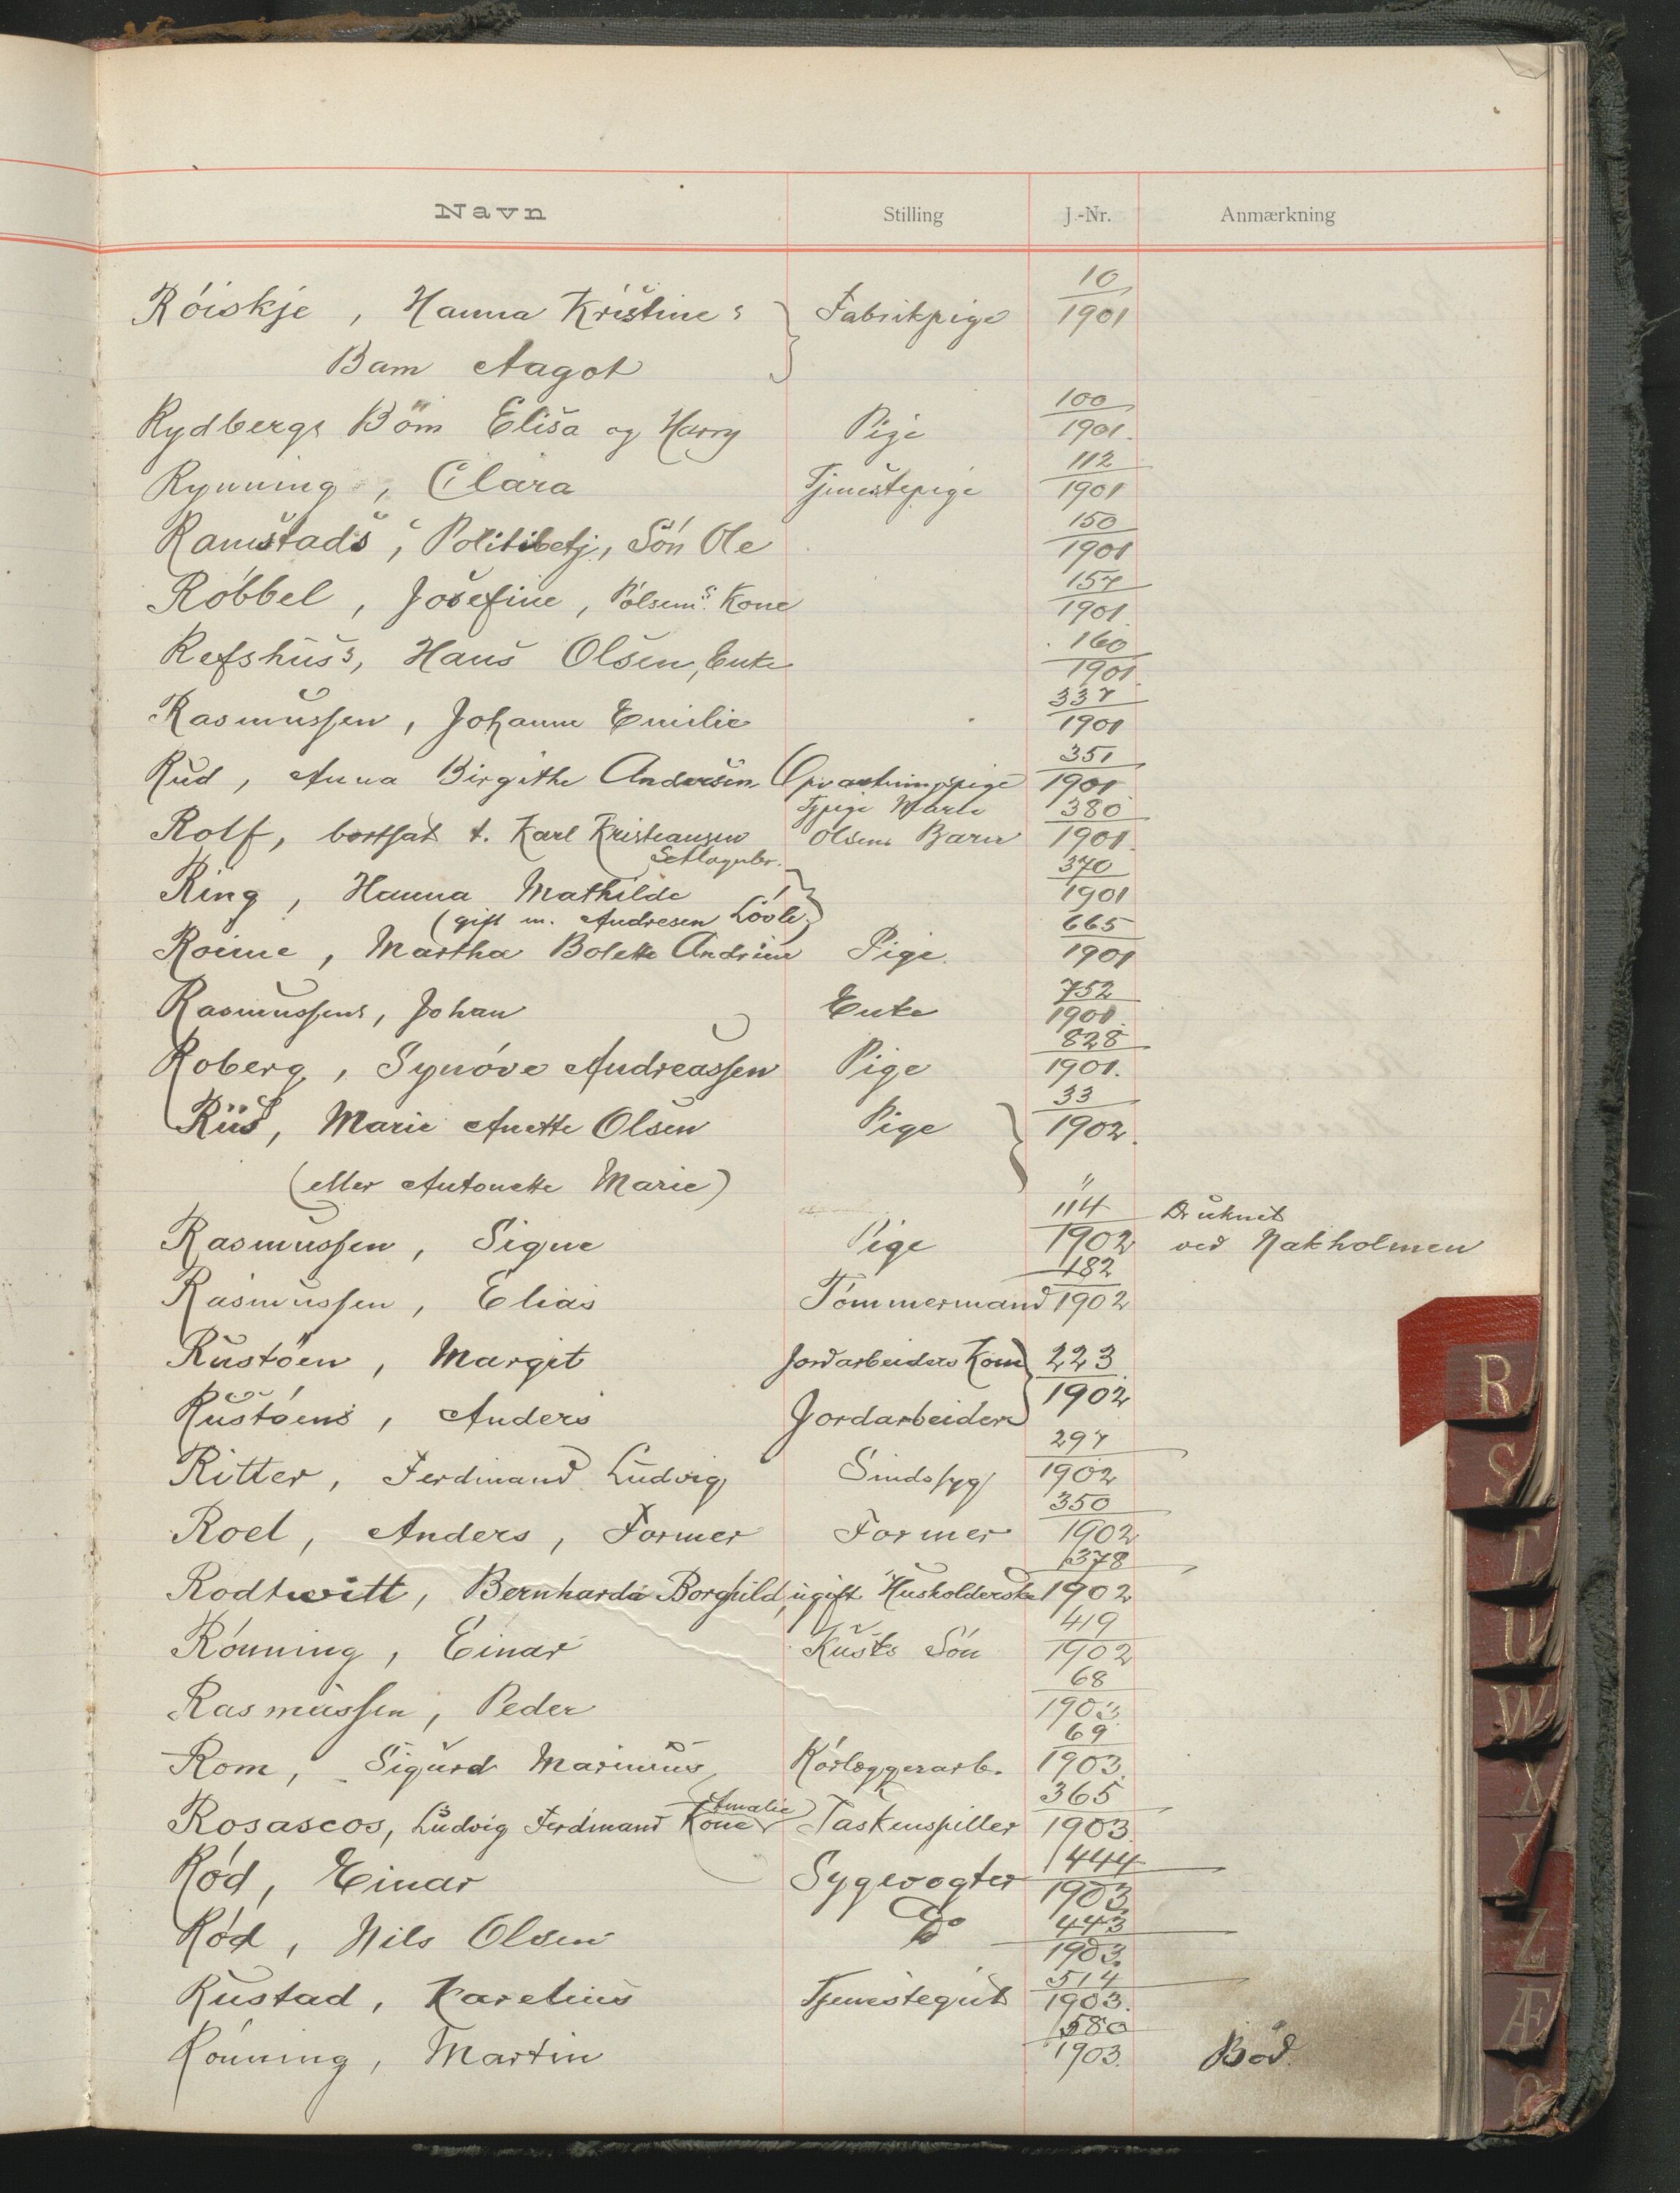 Navn Stilling J.-Nr. Anmærkning
Róiskje, Hanna Kristines Fabrikpige 10/1901
Barn Aagot
Rydbergs Börn Elisa og Harry Pige 100/1901
Rynning, Clara Tjenestepige 112/1901
Ramstads, Politibetj., Són Ole 150/1901
Róbbel, Josefine, Pólsem.s Kone 157/1901
Refshus's, Hans Olsen, Enke 160/1901
Rasmussen, Johanne Emilie 337/1901
Rud, Anna Birgithe Andersen Opvartningspige 351/1901
Rolf, bortsat t. Karl Kristiansen Tjpige Marie Olsens Barn 380/1901
Ring, Hanna Mathilde 370/1901
(gift m. Andresen Lóvli)
Roime, Martha Bolette Andrine Pige 665/1901
Rasmussens, Johan Enke 752/1901
Roberg, Synóve Andreassen Pige 828/1901.
Riis, Marie Anette Olsen Pige 33/1902.
(eller Antonette Marie) "
Rasmussen, Signe Pige 114/1902 Druknet ved Nakholmen
Rasmussen, Elias Tómmermand 182/1902
Rustöen, Margit Jordarbeiders Kone 223/1902
Rustóens, Anders Jordarbeider
Ritter, Ferdinand Ludvig Sindssyg 297/1902
Roel, Anders, Former Former 350/1902
Rodtwitt, Bernharda Borghild, ugift Husholderske 378/1902
Rónning, Einar Kusks Són 419/1902
Rasmussen, Peder 68/1903
Rom, Sigurd Marinius Rórlæggerarb. 69/1903
Rosascos, Ludvig Ferdinand Kone Amalie Taskenspiller 365/1903
Ród, Einar Sygevogter 444/1903
Ród, Nils Olsen Do 443/1903.
Rustad, Karelius Tjenestegut 514/1903.
Rónning, Martin 580/1903. Böd.
R
S
T
U
W
X
Y
Z
Æ
Ø